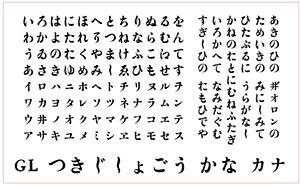 あきのひの　ヰオロンの
ためいきの　みにしみて
ひたぶるに　うらがなし
かねのおとにむねふたぎ
いろかへて　なみだぐむ
すぎしひの　おもひでや
をんてすヲンテス
るむえせルムエセ
ぬらこもヌラコモ
りなふひリナフヒ
ちねけゑチネケヱ
とつましトツマシ
へそやみヘソヤミ
ほれくめホレクメ
にたおゆニタオユ
はよのきハヨノキ
ろかゐさロカヰサ
いわうあイワウア
GL つきじしょごう かな カナ